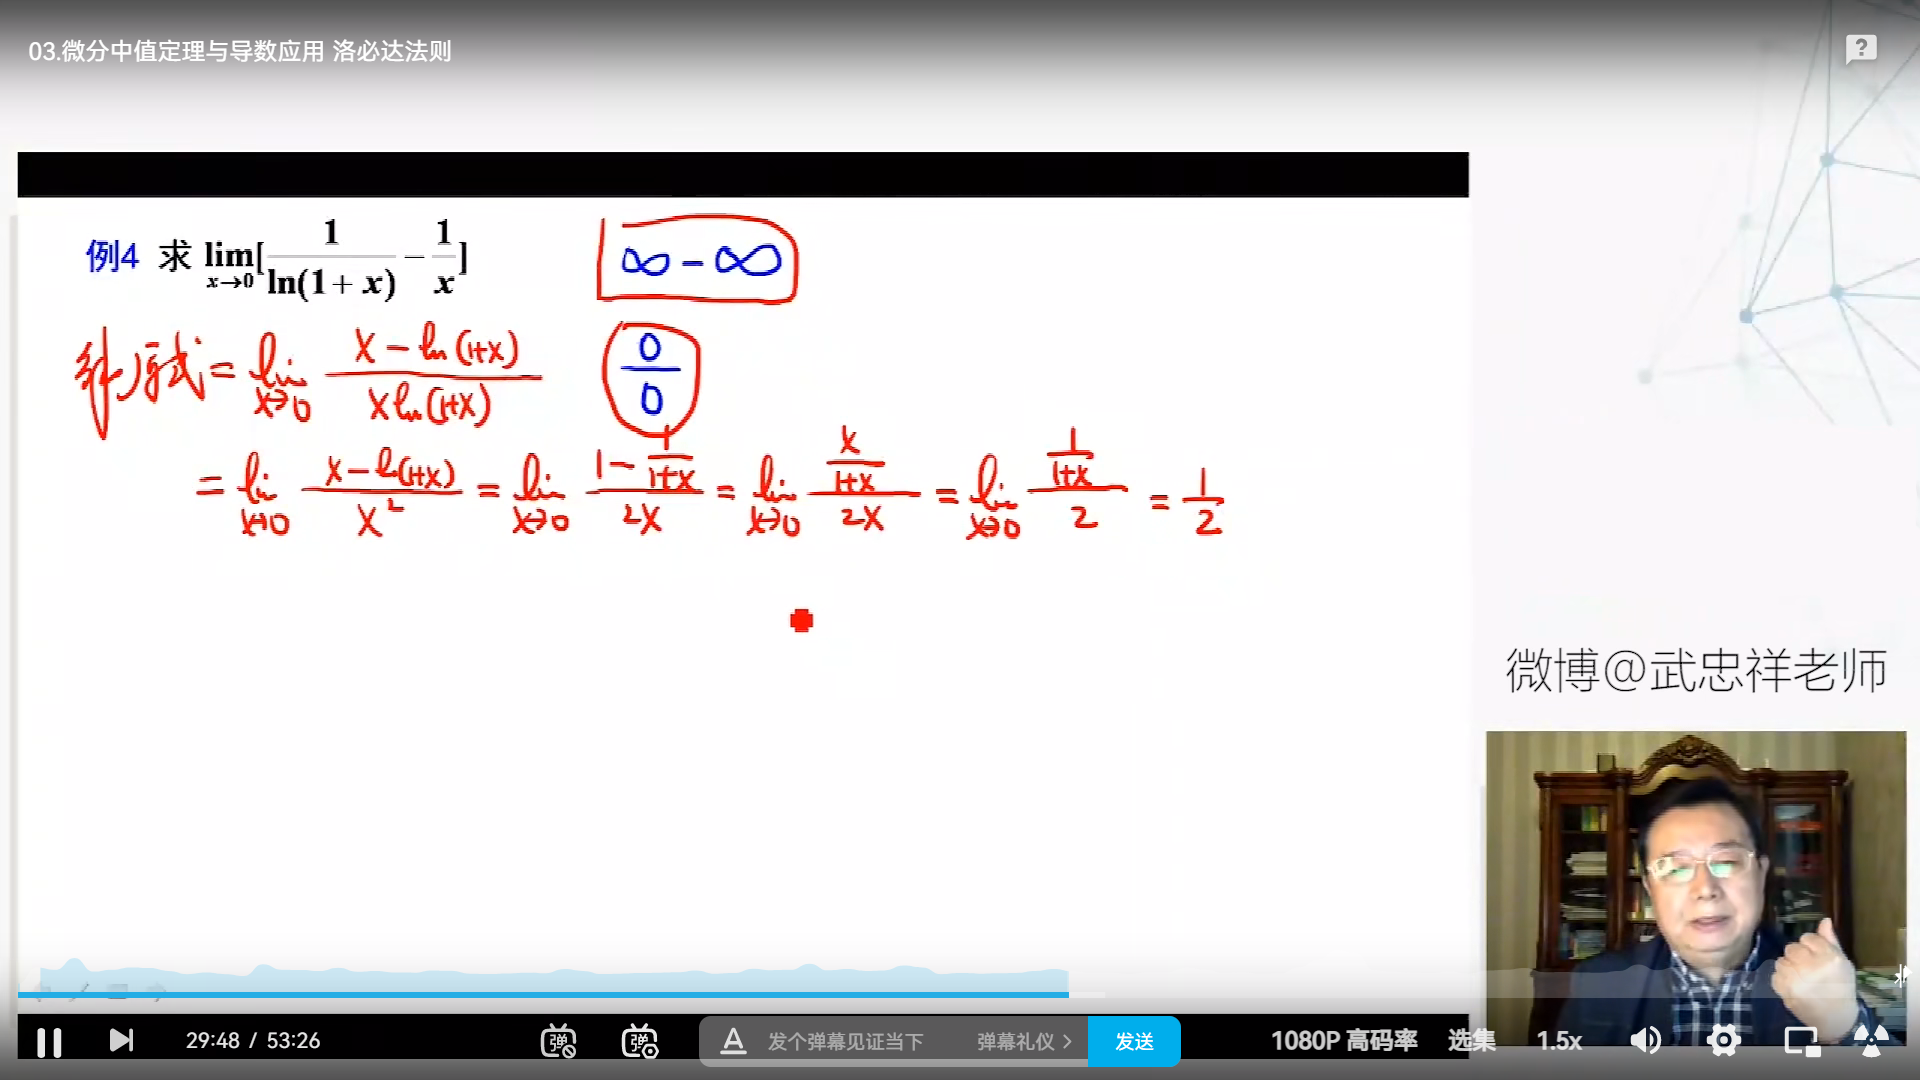 03.微分中值定理与导数应用 洛必达法则
?
例4 求 lim x→0 [1/ln(1+x) − 1/x]
∞ − ∞
解 原式 = lim x→0 (x − ln(1+x))/(x ln(1+x))
0/0
= lim x→0 (x − ln(1+x))/x² = lim x→0 (1 − 1/(1+x))/(2x) = lim x→0 (x/(1+x))/(2x) = lim x→0 (1/(1+x))/2 = 1/2
微博@武忠祥老师
29:48 / 53:26
弹
弹
A 发个弹幕见证当下
弹幕礼仪 >
发送
1080P 高码率
选集
1.5x